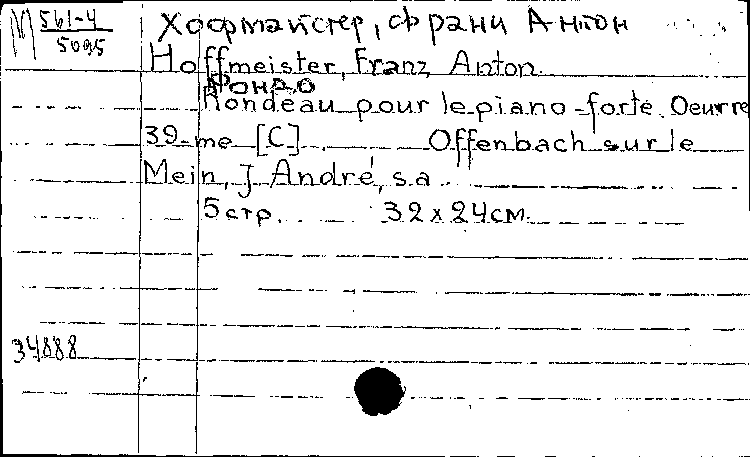 М 561-4
5095
Хофмайстер, Франц Антон
Hoffmeister, Franz Anton
Рондо
Rondeau pour le piano-forte. Oeuvre
39-me [C] Offenbach sur le
Mein, J. André, s.a.
5 стр. 32 x 24 см.
34888